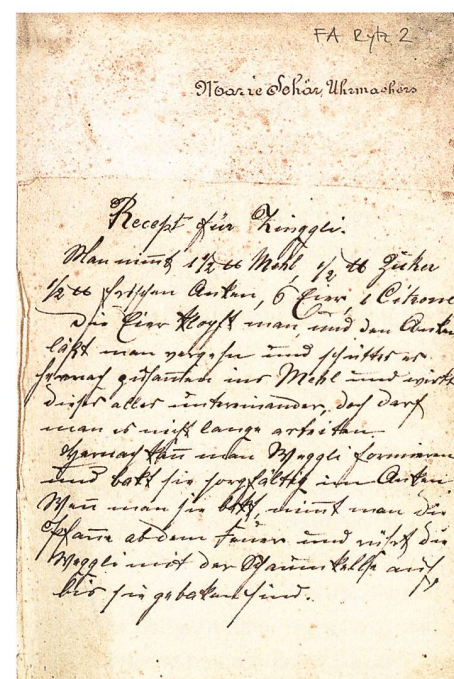 FA Rytz 2
Marie Schär, Uhrmachers
Recept für Zinggli.
Man nimt 1 1/2 ℔ Mehl, 1/2 ℔ Zuker
1/2 ℔ frischen Anken, 6 Eier, 1 Citrone
Die Eier klopft man, und den Anken
läßt man vergehn und schüttet es
hernach zusamen ins Mehl und wirkt
dieses alles untereinander, doch darf
man es nicht lange arbeiten
Hernach kan man Weggli formieren
und bakt sie sorgfältig im Anken
Wen man sie bakt, nimt man die
Pfane ab dem Feuer und rührt die
Weggli mit der Schaumkelle auf
bis sie gebaken sind.